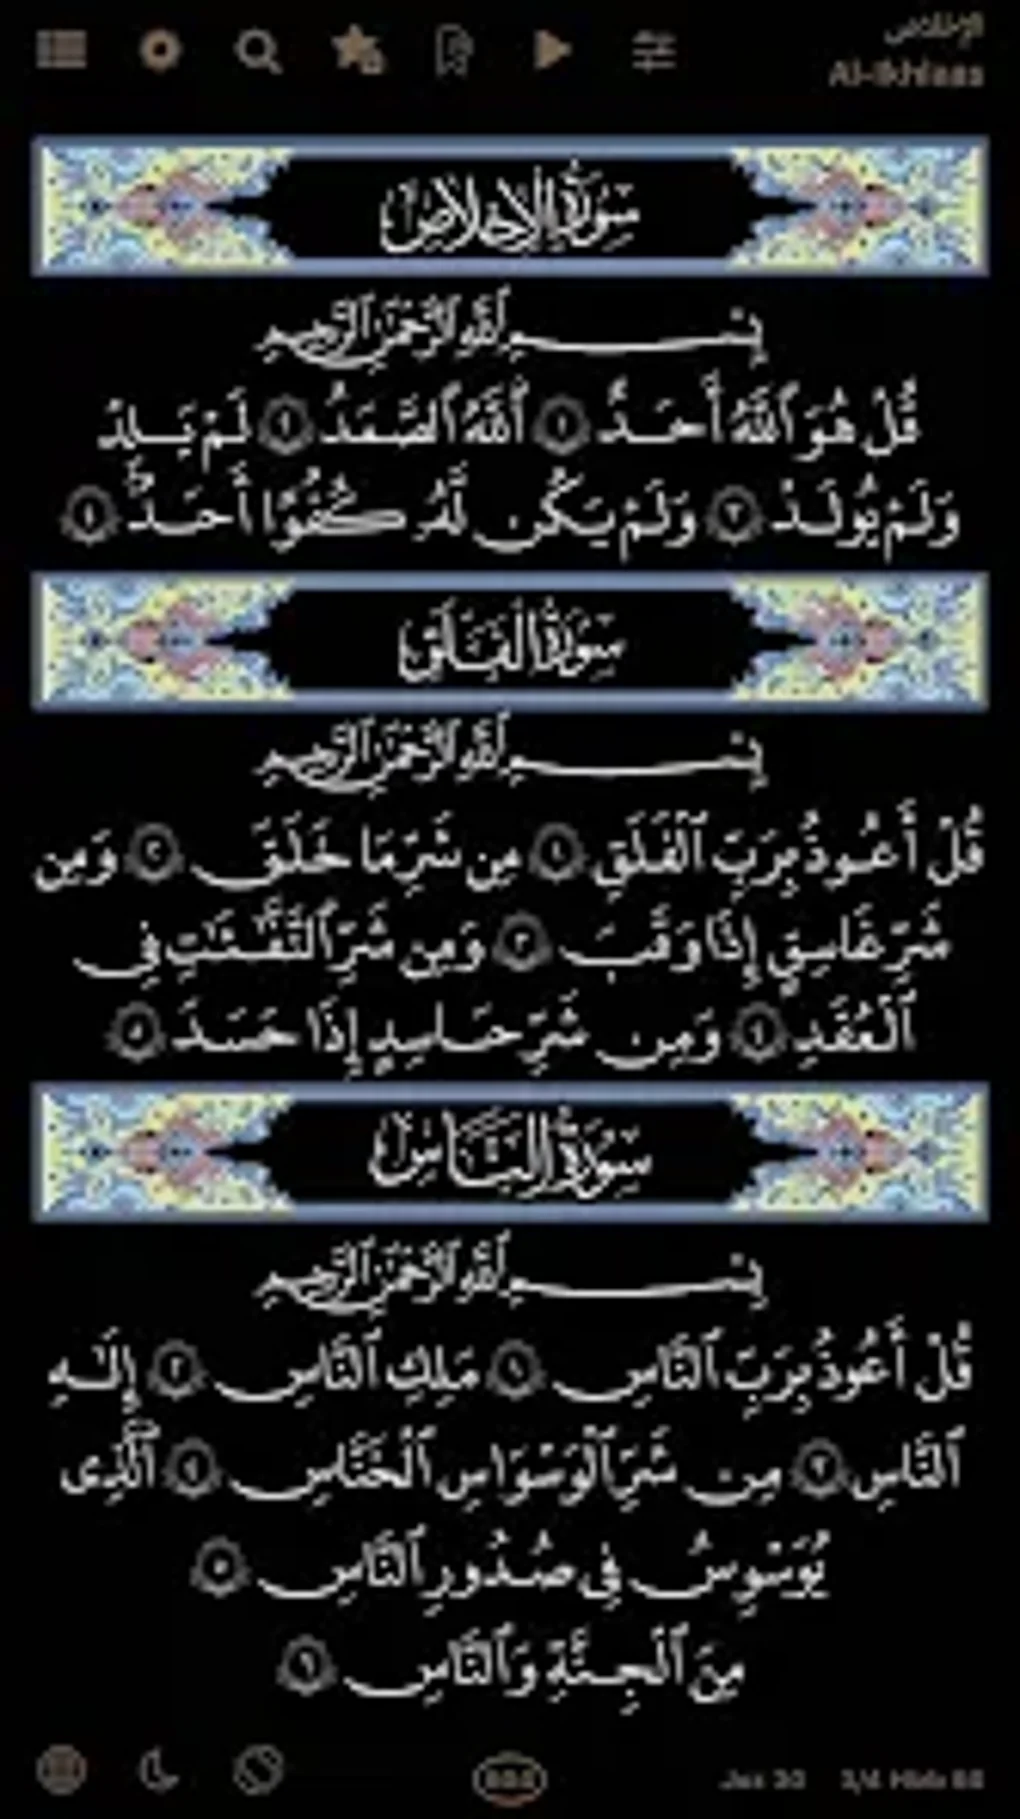 الإخلاص
Al-Ikhlaas
سُورَةُ الإِخْلَاصِ
بِسْمِ ٱللَّهِ ٱلرَّحْمَٰنِ ٱلرَّحِيمِ
قُلْ هُوَ ٱللَّهُ أَحَدٌ ١ ٱللَّهُ ٱلصَّمَدُ ٢ لَمْ يَلِدْ
وَلَمْ يُولَدْ ٣ وَلَمْ يَكُن لَّهُۥ كُفُوًا أَحَدٌۢ ٤
سُورَةُ الْفَلَقِ
بِسْمِ ٱللَّهِ ٱلرَّحْمَٰنِ ٱلرَّحِيمِ
قُلْ أَعُوذُ بِرَبِّ ٱلْفَلَقِ ١ مِن شَرِّ مَا خَلَقَ ٢ وَمِن
شَرِّ غَاسِقٍ إِذَا وَقَبَ ٣ وَمِن شَرِّ ٱلنَّفَّٰثَٰتِ فِى
ٱلْعُقَدِ ٤ وَمِن شَرِّ حَاسِدٍ إِذَا حَسَدَ ٥
سُورَةُ النَّاسِ
بِسْمِ ٱللَّهِ ٱلرَّحْمَٰنِ ٱلرَّحِيمِ
قُلْ أَعُوذُ بِرَبِّ ٱلنَّاسِ ١ مَلِكِ ٱلنَّاسِ ٢ إِلَٰهِ
ٱلنَّاسِ ٣ مِن شَرِّ ٱلْوَسْوَاسِ ٱلْخَنَّاسِ ٤ ٱلَّذِى
يُوَسْوِسُ فِى صُدُورِ ٱلنَّاسِ ٥
مِنَ ٱلْجِنَّةِ وَٱلنَّاسِ ٦
604
Juz 30 3/4 Hizb 60